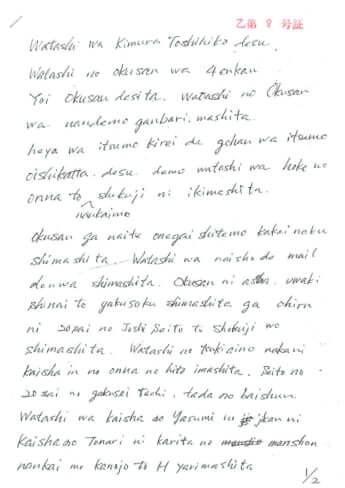 乙第 9 号証
Watashi wa Kimura Toshihiko desu.
Watashi no okusan wa 4enkan
Yoi Okusan desita. Watashi no Okusan
wa nandemo ganbari.mashita.
heya wa itsumo kirei de gohan wa itsumo
oishikatta.desu. demo watashi wa hoka no
onna to shokuji ni ikimashita.
nankaimo
Okusan ga naite onegai shitemo kakei naku
shimashita. Watashi wa naisho de mail
denwa shimashita. Okusan ni uwaki
shinai to yakusoku shimashita ga ohiru
ni 20sai no Joshi Seito to Shokuji wo
shimashita. Watashi no tsukiaino nakani
kaisha in no onna no hito imashita. Seito no
20 sai no gakusei tachi. tada no baishun
Watashi wa kaisha no Yasumi jikan ni
Kaisha no Tonari ni karita no manshon
nankai mo kanojo to H yarimashita
1/2